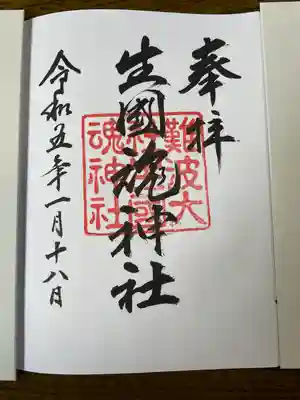 奉拝
生國魂神社
令和五年一月十八日
難波大
魂神社